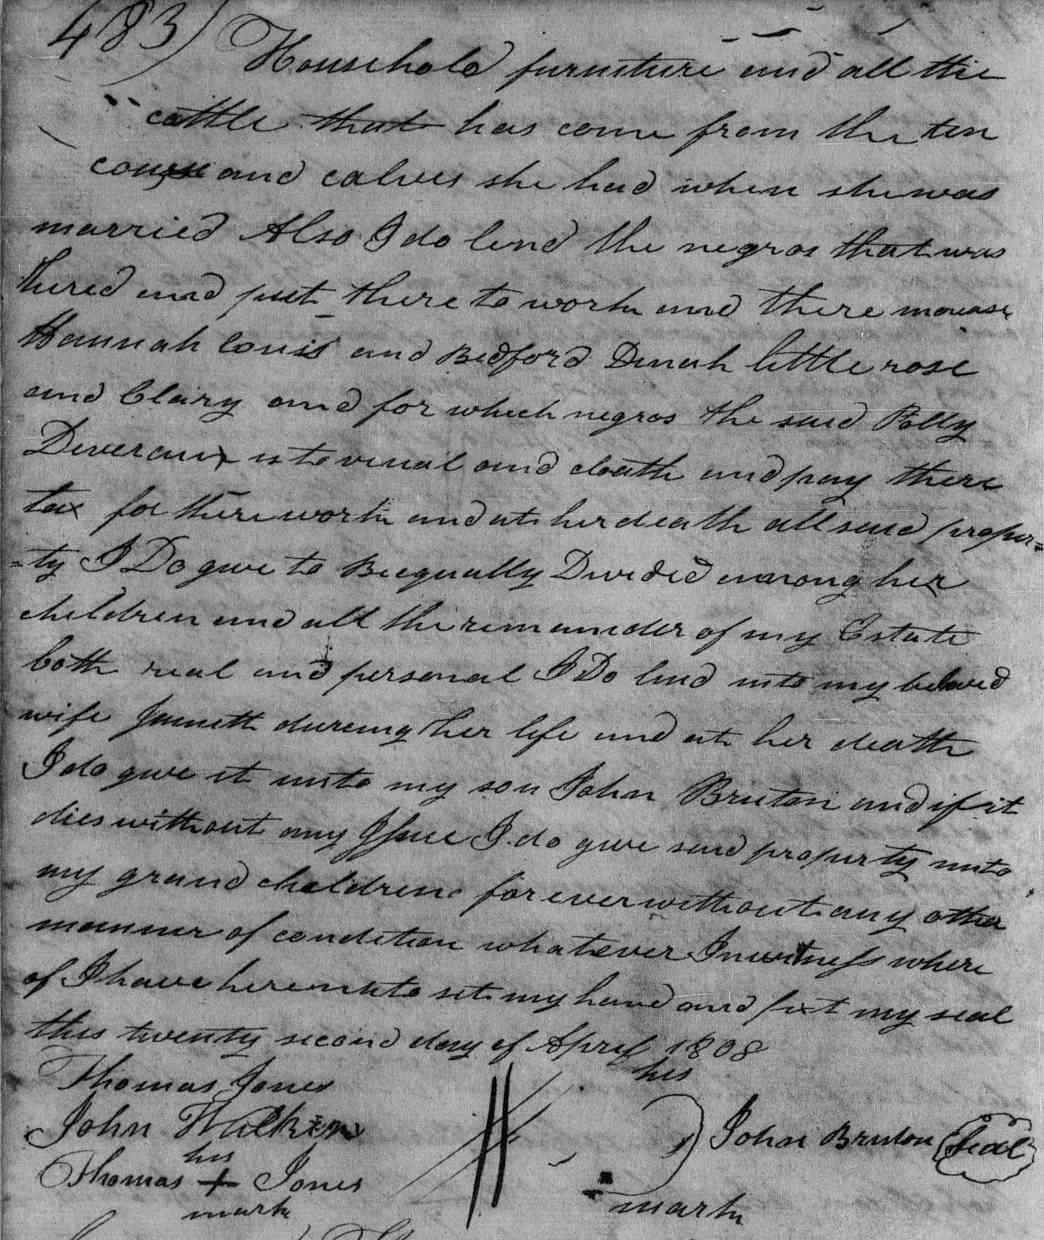 483)
Household furniture and all the
cattle that has come from the ten
cows and calves she had when she was
married Also I do lend the negros that was
there to work and there
Hannah and Bedford Dinah little rose
and Clary and for which negros the said Polly
Deveraux is to and cloath and pay there
tax for there work and at her death all said proper=
=ty I Do give to Be equally Divided among her
children and all the remainder of my Estate
both real and personal I Do lend unto my beloved
wife dureing her life and at her death
I do give it unto my son John Bruton and if it
dies without any Issue I do give said property unto
my grand children for ever without any other
manner of condition whatever In witness where
of I have hereunto set my hand and my seal
this twenty second day of April 1808
Thomas Jones
his
John
John Bruton Seal
his
Thomas + Jones
mark
mark